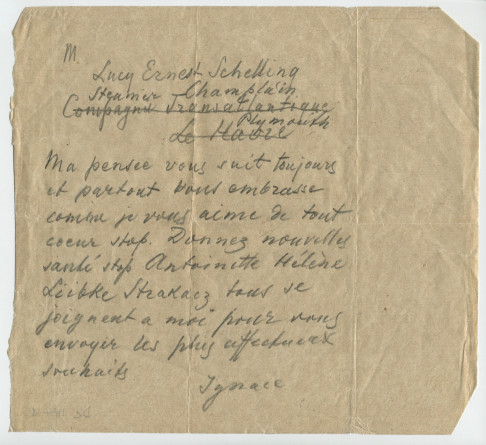 M.
Lucy Ernest Schelling
Steamer Champlain
Compagnie Transatlantique
Plymouth
Le Havre
Ma pensee vous suit toujours
et partout vous embrasse
comme je vous aime de tout
coeur stop. Donnez nouvelles
santé stop Antoinette Hélène
Liibke Strakacz tous se
joignent a moi pour vous
envoyer les plus affectueux
souhaits
Ignace